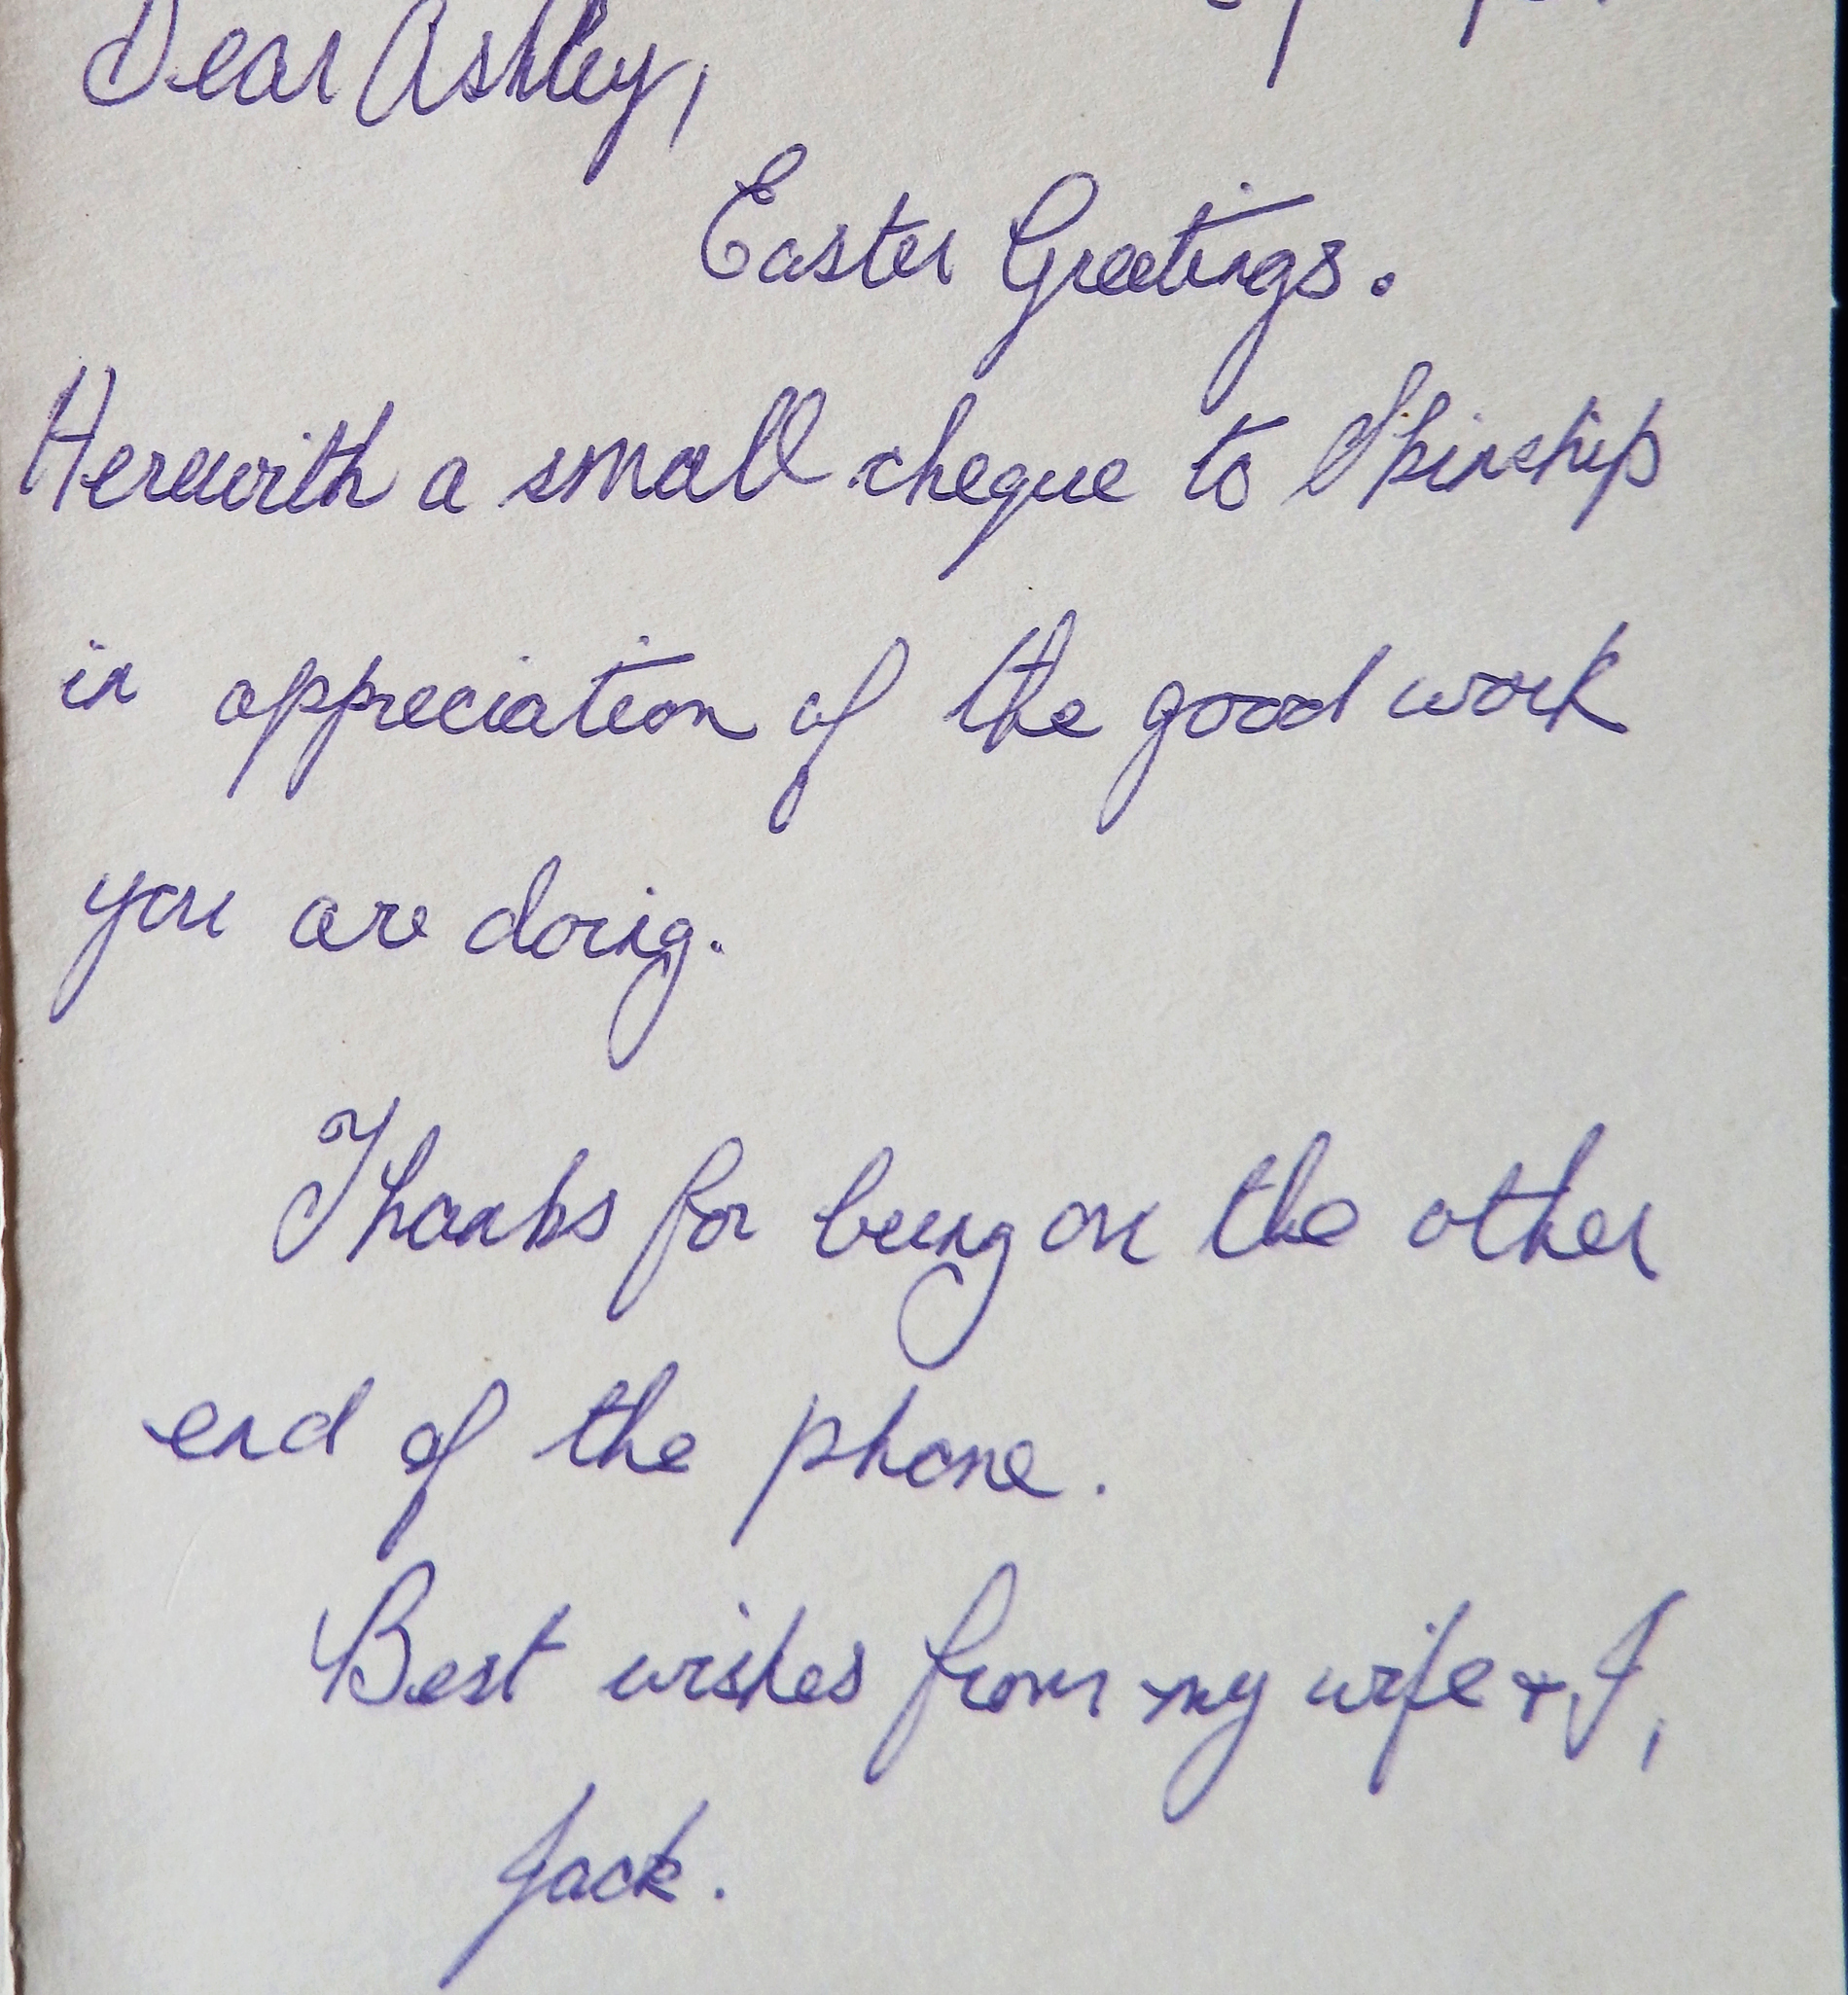 Dear Ashley,
Easter Greetings.
Herewith a small cheque to Spinship
in appreciation of the good work
you are doing.
Thanks for being on the other
end of the phone.
Best wishes from my wife + I,
Jack.